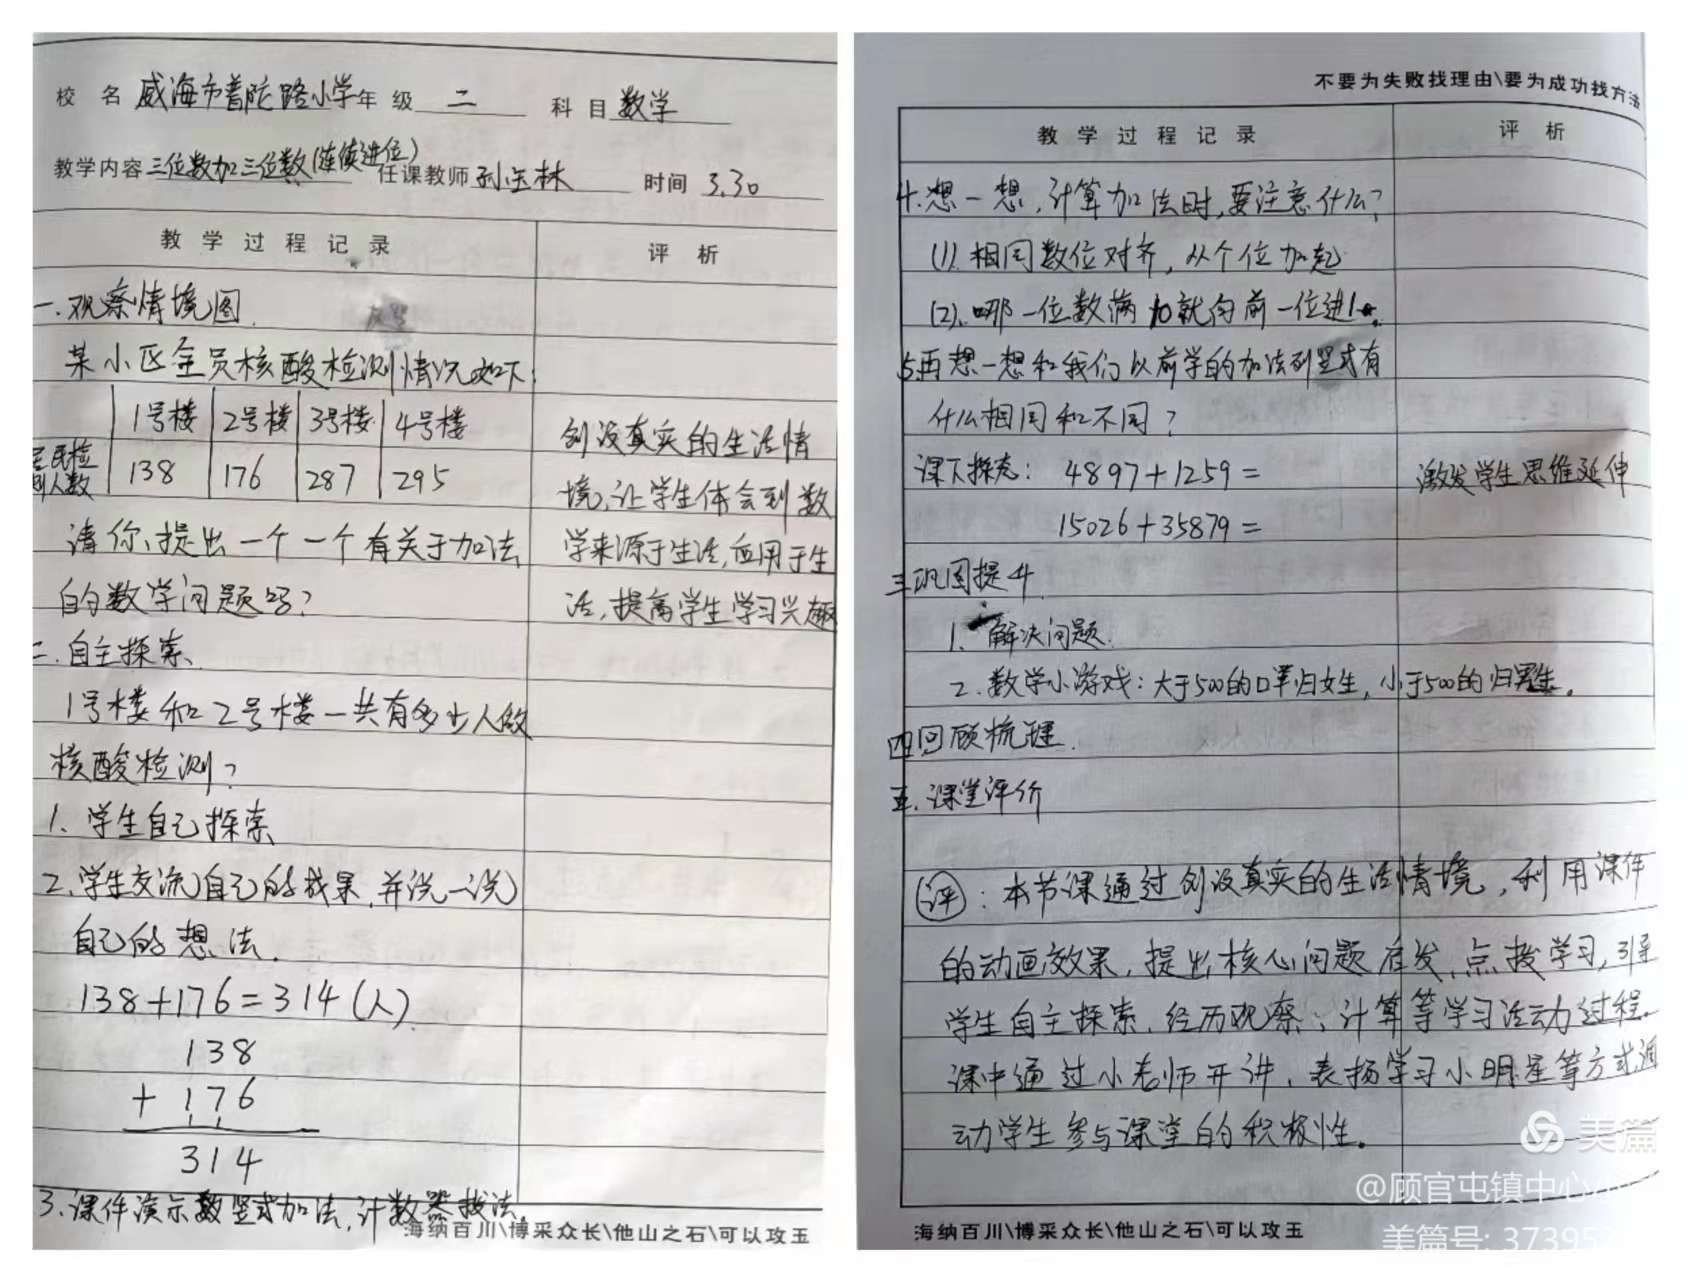 校 名 威海市普陀路小学 年 级 二 科 目 数学
教学内容 三位数加三位数(连续进位) 任课教师 孙玉林 时间 3.30
教 学 过 程 记 录 评 析
一.观察情境图.
某小区全员核酸检测情况如下:
1号楼 2号楼 3号楼 4号楼
居民检测人数 138 176 287 295
创设真实的生活情
境,让学生体会到数
请你提出一个一个有关于加法
学来源于生活,应用于生
的数学问题吗?
活,提高学生学习兴趣
二.自主探索.
1号楼和2号楼一共有多少人做
核酸检测?
1.学生自己探索
2.学生交流自己的成果,并说一说
自己的想法.
138+176=314(人)
138
+ 176
1 1
314
3.课件演示数竖式加法,计数器拨法.
海纳百川\博采众长\他山之石\可以攻玉
不要为失败找理由\要为成功找方法
教 学 过 程 记 录 评 析
4.想一想,计算加法时,要注意什么?
(1).相同数位对齐,从个位加起
(2).哪一位数满10就向前一位进1.
5.再想一想和我们以前学的加法列竖式有
什么相同和不同?
课下探究: 4897+1259=
激发学生思维延伸
15026+35879=
三.巩固提升
1. 解决问题.
2.数学小游戏:大于500的口罩归女生,小于500的归男生.
四.回顾梳理.
五.课堂评价
评:本节课通过创设真实的生活情境,利用课件
的动画效果,提出核心问题启发、点拨学习,引导
学生自主探索,经历观察、计算等学习活动过程.
课中通过小老师开讲,表扬学习小明星等方式调
动学生参与课堂的积极性。
美篇
@顾官屯镇中心小
海纳百川\博采众长\他山之石\可以攻玉
美篇号: 37395